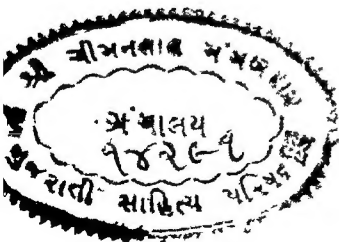 શ્રી ચીમનલાલ મંગળદાસ
ગ્રંથાલય
૧૪૨૯૧
ગુજરાતી સાહિત્ય પરિષદ